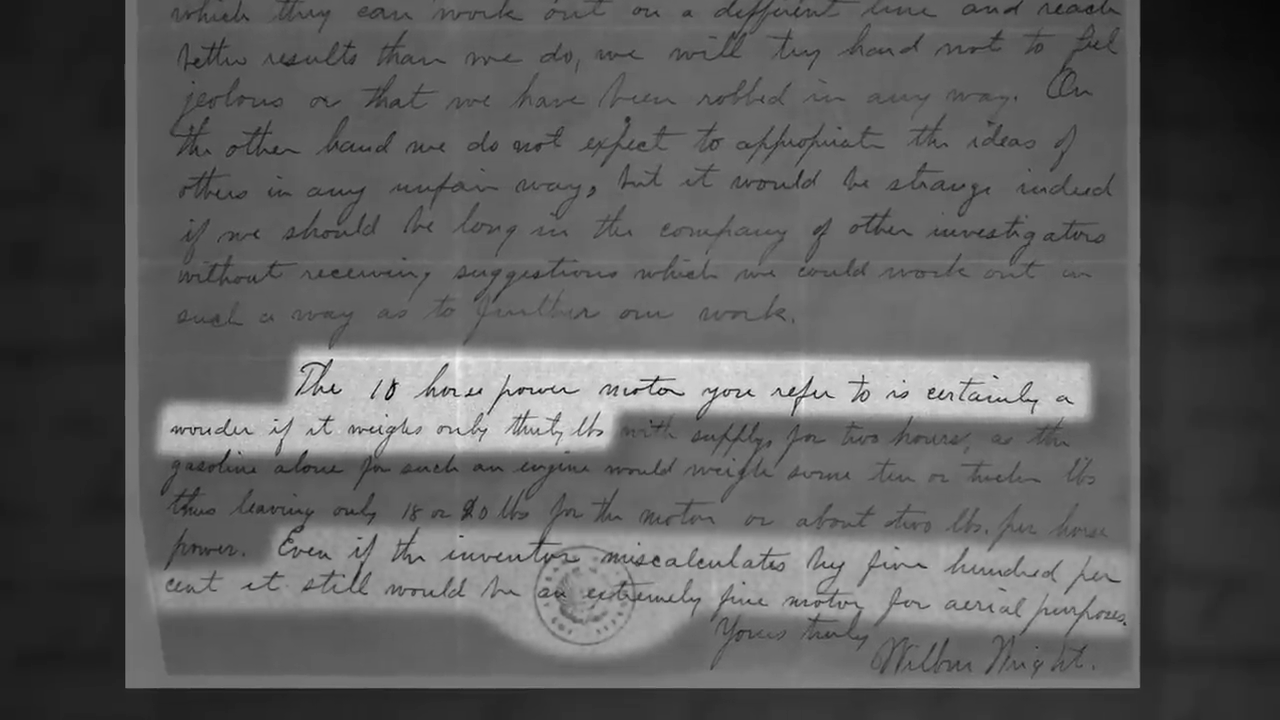 which they can work out on a different line and reach
better results than we do, we will try hard not to feel
jealous or that we have been robbed in any way. On
the other hand we do not expect to appropriate the ideas of
others in any unfair way, but it would be strange indeed
if we should be long in the company of other investigators
without receiving suggestions which we could work out in
such a way as to further our work.
The 10 horse power motor you refer to is certainly a
wonder if it weighs only thirty lbs with supply for two hours, as the
gasoline alone for such an engine would weigh some ten or twelve lbs
thus leaving only 18 or 20 lbs for the motor or about two lbs. per horse
power. Even if the inventor miscalculates by five hundred per
cent it still would be an extremely fine motor for aerial purposes.
Yours truly
Wilbur Wright.